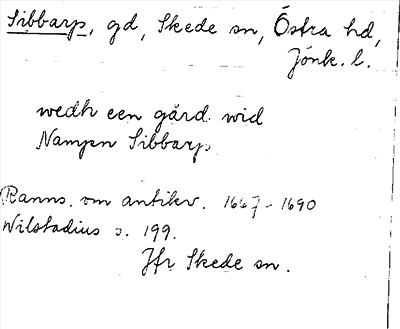 Sibbarp, gd, Skede sn, Östra hd,
Jönk. l.
wedh een gård wid
Nampn Sibbarp
Ranns. om antikv. 1667-1690
Wilstadius s. 199.
Jfr Skede sn.